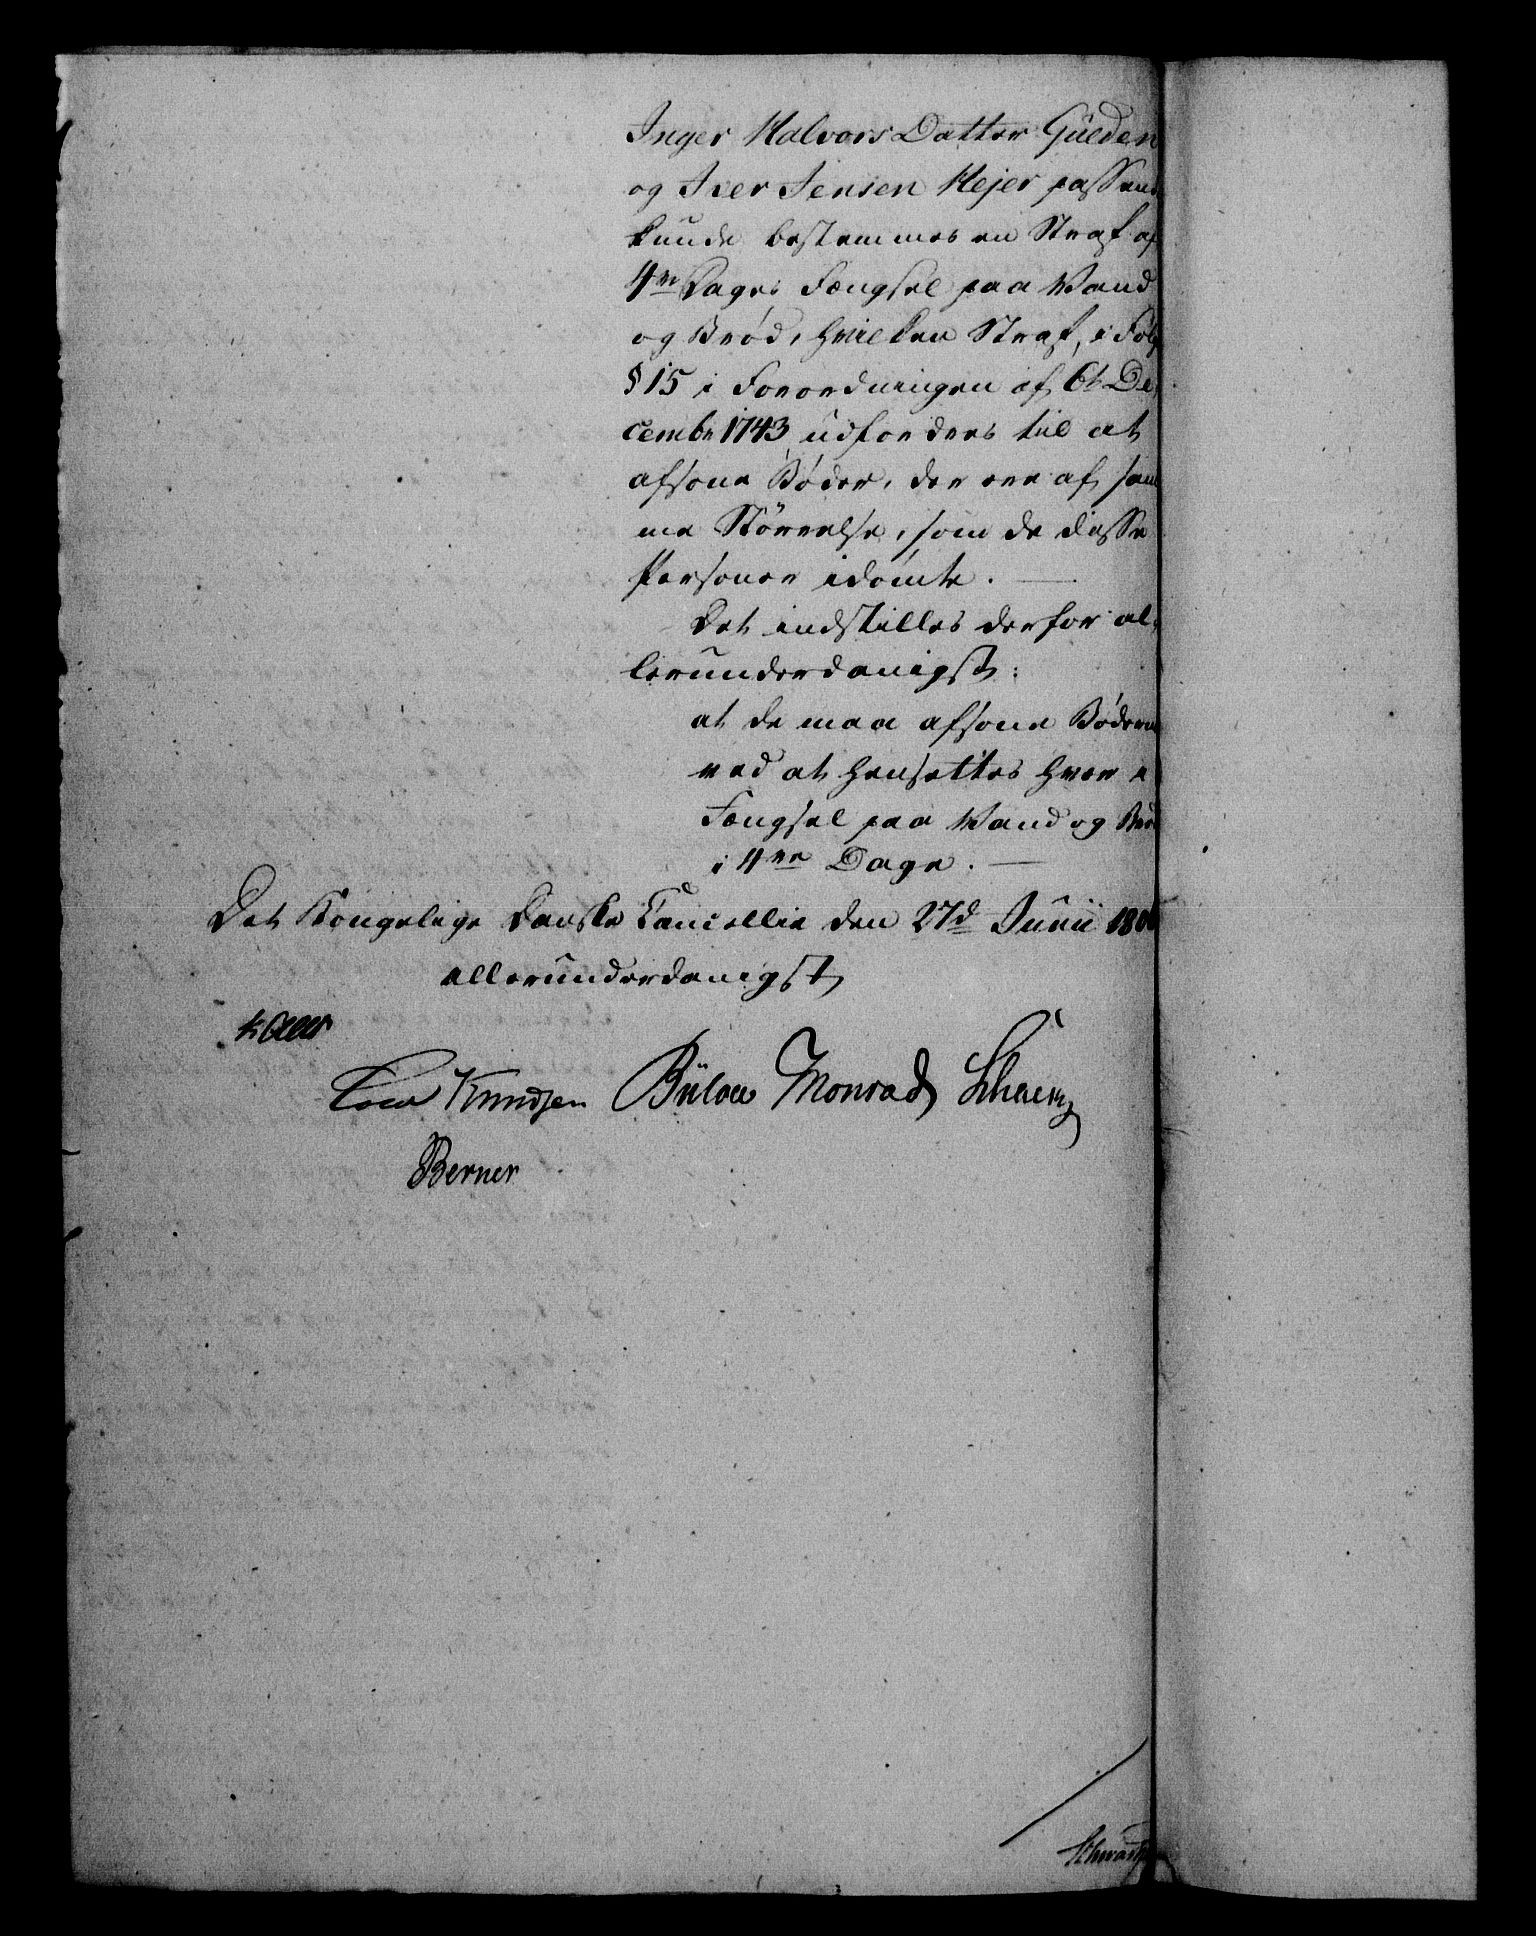 Inger Halvors Datter Gulden
og Iver Jensen Hejer passend
kunde bestemmes en Straf af
4re Dages Fængsel paa Vand
og Brød, hvilken Straf, i Følg
§ 15 i Forordningen af 6t De
cembr 1743 udfordres til at
afsone Bøder, der ere af sam
me Størrelse, som de disse
Personer idømte.
Det indstilles derfor al,
lerunderdanigst:
at de maa afsone Bødern
ved at hensættes hver i
Fængsel paa Vand og Brød
i 4re Dage.
Det Kongelige Danske Cancellie den 27d Junii 180
allerunderdanigst
Kaas
Knudsen Bülow Monrad
Berner